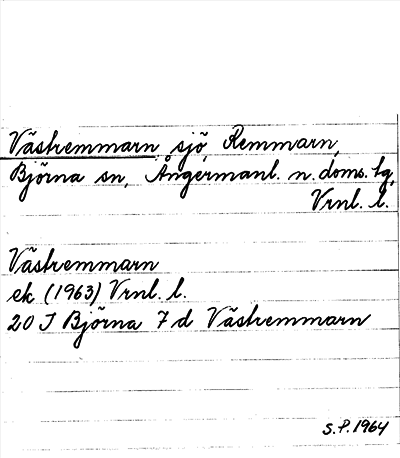 Västremmarn sjö, Remmarn,
Björna sn, Ångermanl. n. doms. tg,
Vrnl. l.
Västremmarn
ek (1963) Vrnl. l.
20 J Björna 7 d Västremmarn
S.P. 1964